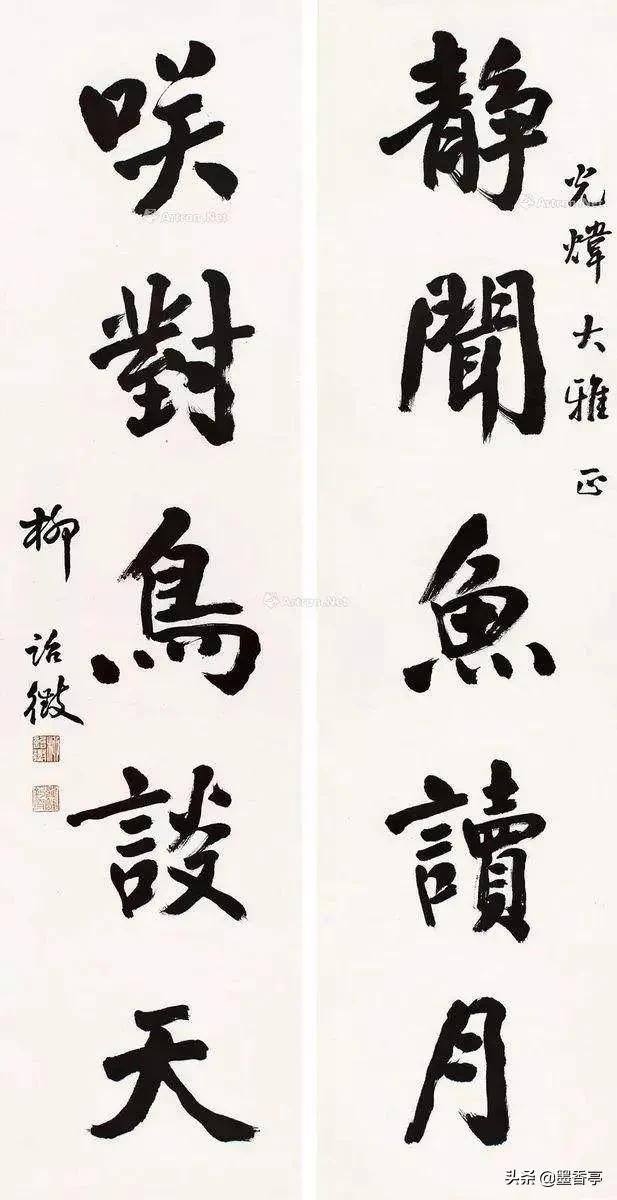 光煒大雅正
静聞魚讀月
咲對鳥談天
柳詒徵
Artron.Net
Artron.Net
Artron.Net
头条 @墨香亭